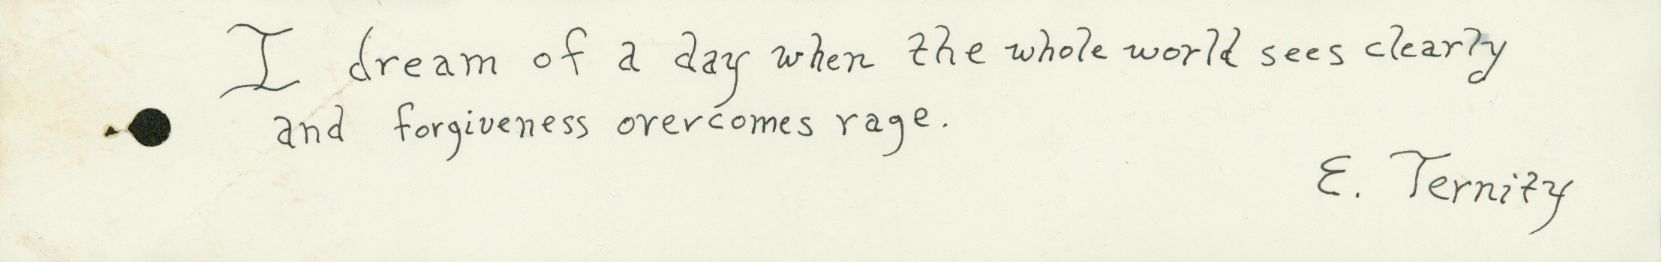 I dream of a day when the whole world sees clearly
and forgiveness overcomes rage.
E. Ternity